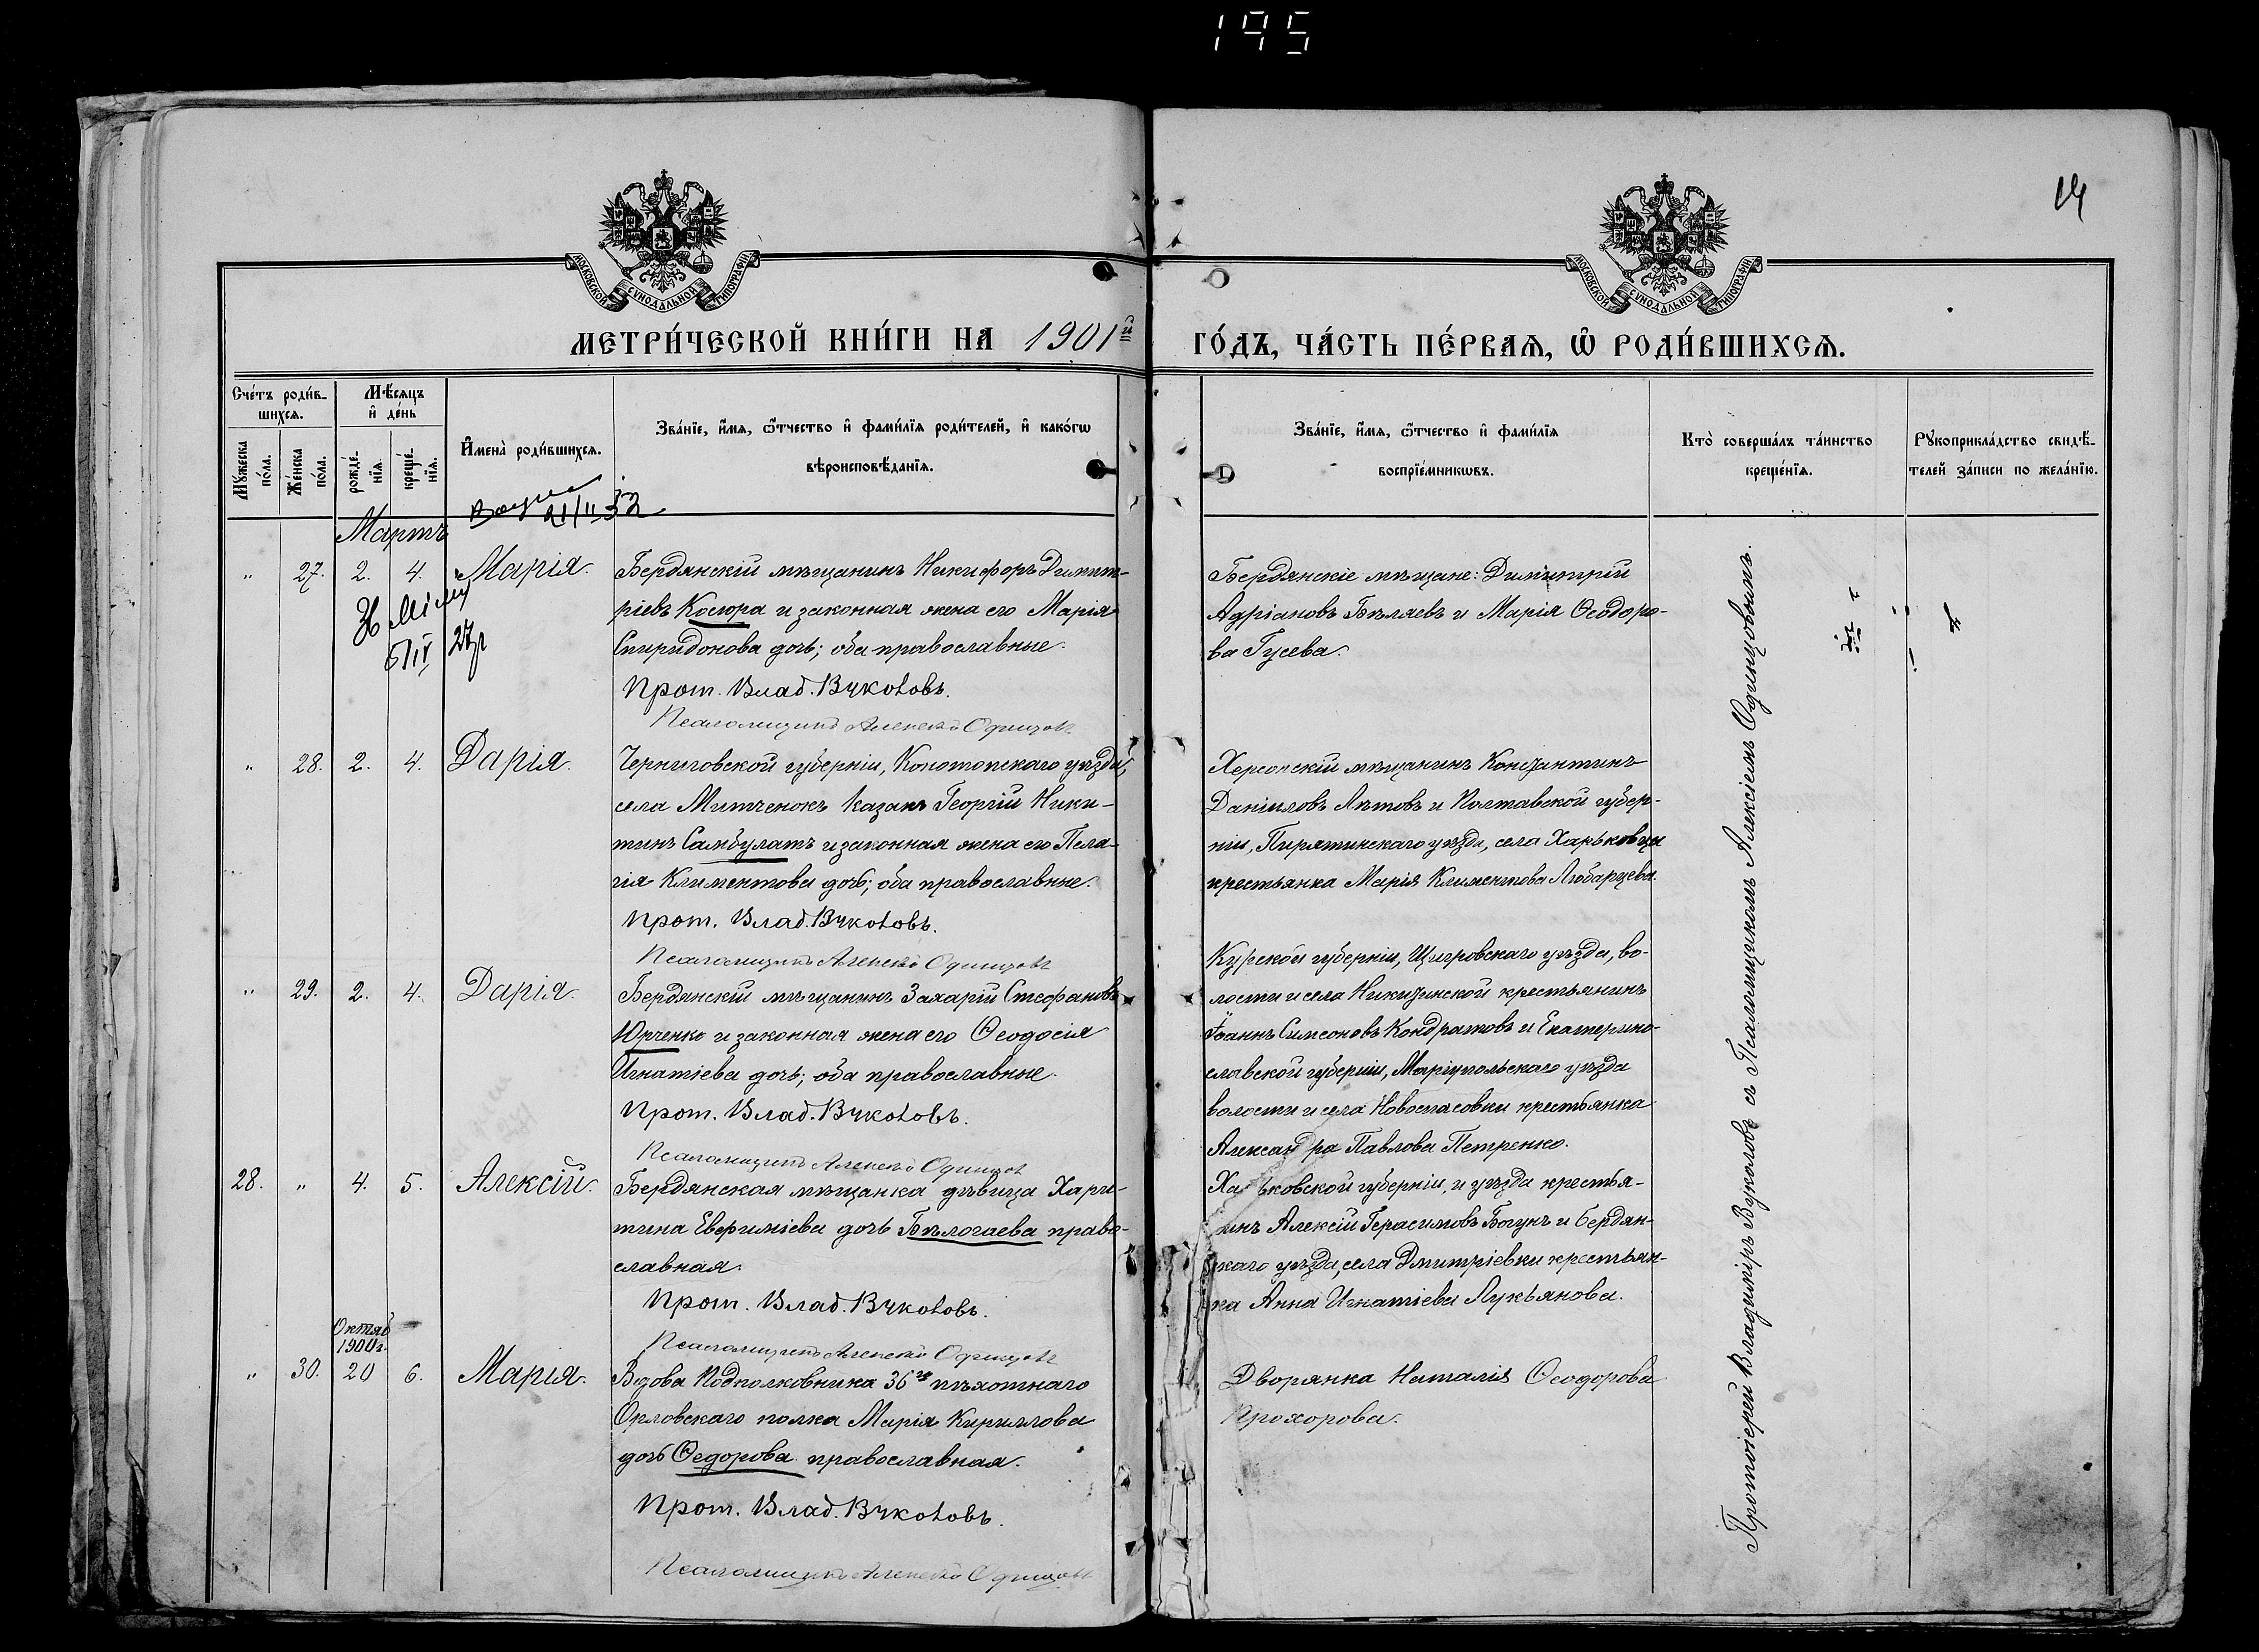 195
14
МОСКОВСКОЙ СѴНОДАЛЬНОЙ ТИПОГРАФІИ
МОСКОВСКОЙ СѴНОДАЛЬНОЙ ТИПОГРАФІИ
МЕТРИ́ЧЕСКОЙ КНИ́ГИ НА 1901й ГО́ДЪ, ЧА́СТЬ ПЕ́РВАЯ, Ѡ҆ РОДИ́ВШИХСЯ.
Сче́тъ роди́в-
шихся.
Мꙋжеска по́ла.
Же́нска по́ла.
Мѣ́сяцъ
и҆ де́нь
рожде́-
нїя.
креще́-
нїя.
И҆мена̀ роди́вшихся.
Зва́нїе, и҆́мя, ѻ҆́тчество и҆ фами́лїя роди́телей, и҆ како́гѡ
вѣроисповѣ́данїя.
Зва́нїе, и҆́мя, ѻ҆́тчество и҆ фами́лїя
воспрїе́мникѡвъ.
Кто̀ соверша́лъ та́инство
креще́нїя.
Рꙋкоприкла́дство свидѣ́-
телей за́писи по жела́нїю.
21/II 32
Мартъ
" 27. 2. 4. Марія.
Бердянскій мѣщанинъ Никифоръ Димит-
ріевъ Косюра и законная жена его Марія
Спиридонова дочь; оба православные.
Прот. Влад. Вуколовъ.
Псаломщикъ Алексѣй Одинцовъ
Бердянскіе мѣщане: Димитрій
Адріановъ Бѣляевъ и Марія Ѳеодоро-
ва Гусева.
27
" 28. 2. 4. Дарія.
Черниговской губерніи, Конотопскаго уѣзда,
села Митченокъ казакъ Георгій Ники-
тинъ Самбулатъ и законная жена его Пела-
гія Климентова дочь; оба православные.
Прот. Влад. Вуколовъ.
Псаломщикъ Алексѣй Одинцовъ
Херсонскій мѣщанинъ Константинъ
Даніиловъ Лѣтовъ и Полтавской губер-
ніи, Пирятинскаго уѣзда, села Харьковцы
крестьянка Марія Климентова Любарцева.
" 29. 2. 4. Дарія.
Бердянскій мѣщанинъ Захарій Стефановъ
Юрченко и законная жена его Ѳеодосія
Игнатіева дочь; оба православные.
Прот. Влад. Вуколовъ.
Псаломщикъ Алексѣй Одинцовъ
Курской губерніи, Щигровскаго уѣзда, во-
лости и села Никитинской крестьянинъ
Іоаннъ Симеоновъ Кондратовъ и Екатерино-
славской губерніи, Маріупольскаго уѣзда
волости и села Новоспасовки крестьянка
Александра Павлова Петренко.
28. " 4. 5. Алексій.
Бердянская мѣщанка дѣвица Хари-
тина Евфиміева дочь Бѣлогаева право-
славная.
Прот. Влад. Вуколовъ.
Псаломщикъ Алексѣй Одинцовъ
Харьковской губерніи, и уѣзда крестья-
нинъ Алексій Герасимовъ Богунъ и Бердян-
скаго уѣзда, села Дмитріевки крестьян-
ка Анна Игнатіева Лукьянова.
Октяб
1900 г.
" 30. 20 6. Марія.
Вдова Подполковника 36го пѣхотнаго
Орловскаго полка Марія Кириллова
дочь Ѳедорова православная.
Прот. Влад. Вуколовъ.
Псаломщикъ Алексѣй Одинцовъ
Дворянка Наталія Ѳеодорова
Прохорова.
Протоіерей Владиміръ Вуколовъ съ Псаломщикомъ Алексіемъ Одинцовымъ.